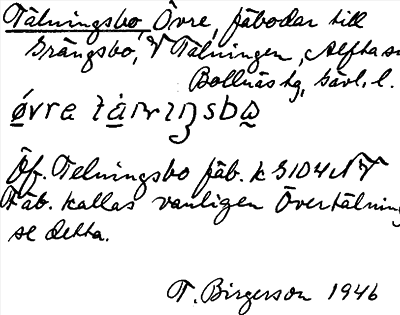 Tälningsbo, Övre, fäbodar till
Grängsbo, V Tälningen, Alfta s
Bollnäs tg, Gävl. l.
øvre
Öf. Telningsbo fäb. k G104 NV
Fäb. kallas vanligen Övertälning
se detta.
T. Birgerson 1946